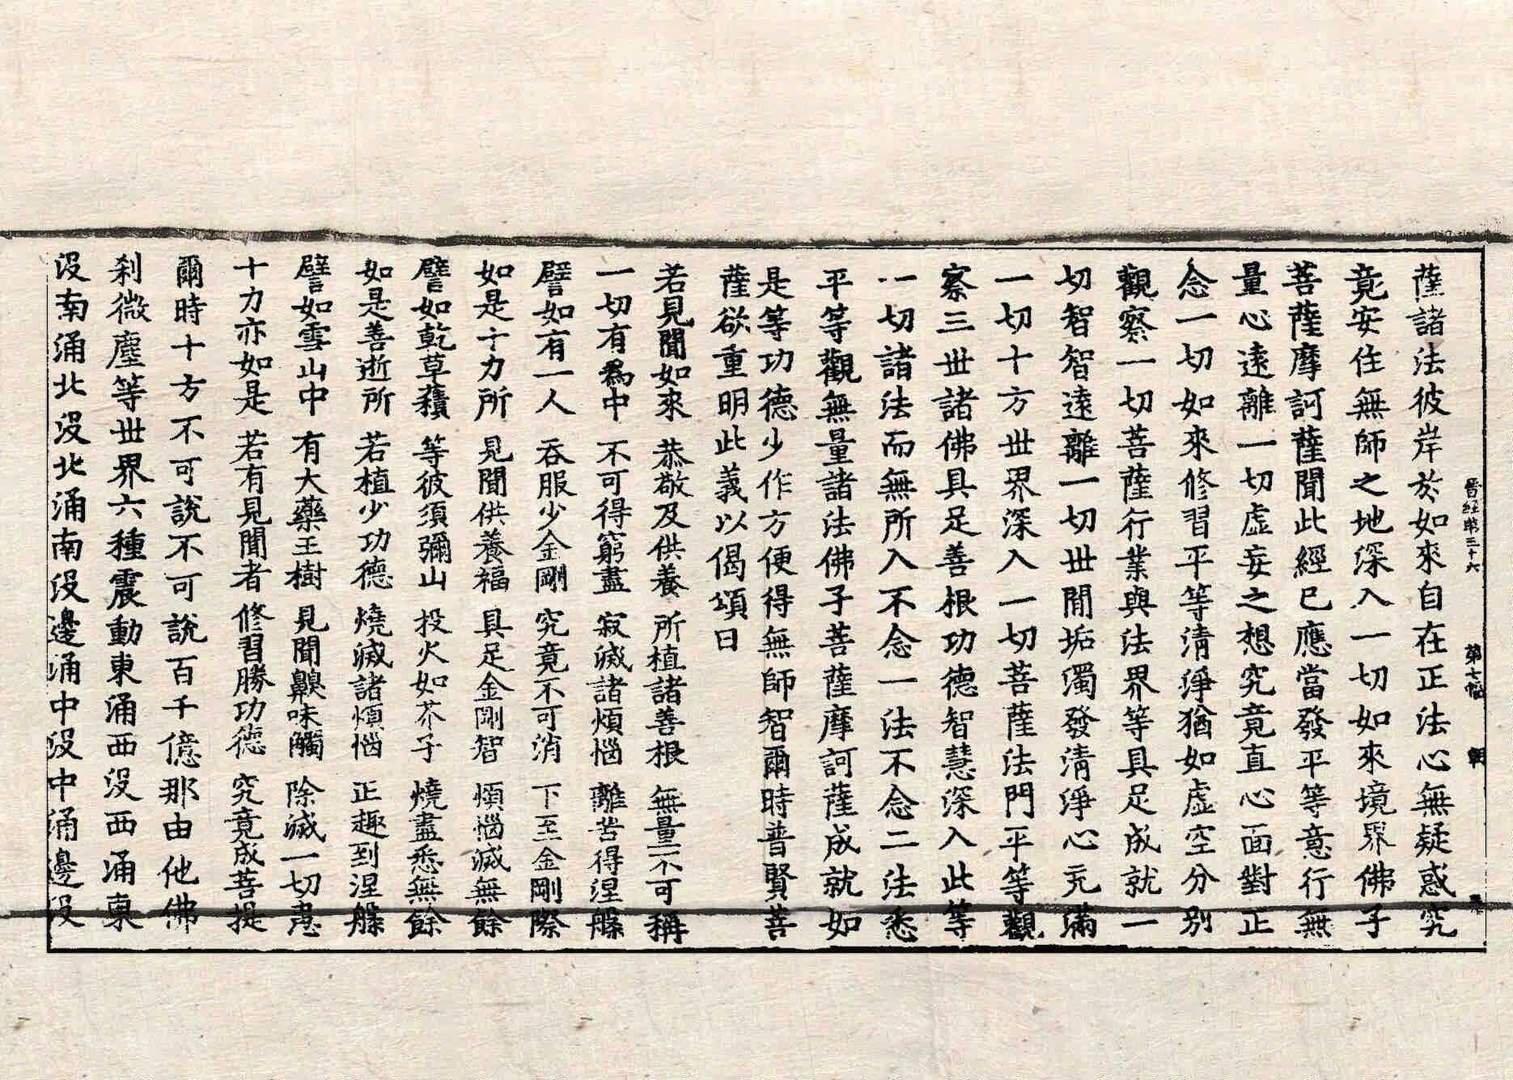 晉經第三十六 第七幅
薩諸法彼岸於如來自在正法心無疑惑究
竟安住無師之地深入一切如來境界佛子
菩薩摩訶薩聞此經已應當發平等意行無
量心遠離一切虛妄之想究竟直心面對正
念一切如來修習平等清淨猶如虛空分別
觀察一切菩薩行業與法界等具足成就一
切智智遠離一切世間垢濁發清淨心充滿
一切十方世界深入一切菩薩法門平等觀
察三世諸佛具足善根功德智慧深入此等
一切諸法而無所入不念一法不念二法悉
平等觀無量諸法佛子菩薩摩訶薩成就如
是等功德少作方便得無師智爾時普賢菩
薩欲重明此義以偈頌曰
若見聞如來 恭敬及供養 所植諸善根 無量不可稱
一切有為中 不可得窮盡 寂滅諸煩惱 離苦得涅槃
譬如有一人 吞服少金剛 究竟不可消 下至金剛際
如是十力所 見聞供養福 具足金剛智 煩惱滅無餘
譬如乾草積 等彼須彌山 投火如芥子 燒盡悉無餘
如是善逝所 若植少功德 燒滅諸煩惱 正趣到涅槃
譬如雪山中 有大藥王樹 見聞齅味觸 除滅一切患
十力亦如是 若有見聞者 修習勝功德 究竟成菩提
爾時十方不可說不可說百千億那由他佛
剎微塵等世界六種震動東涌西沒西涌東
沒南涌北沒北涌南沒邊涌中沒中涌邊沒